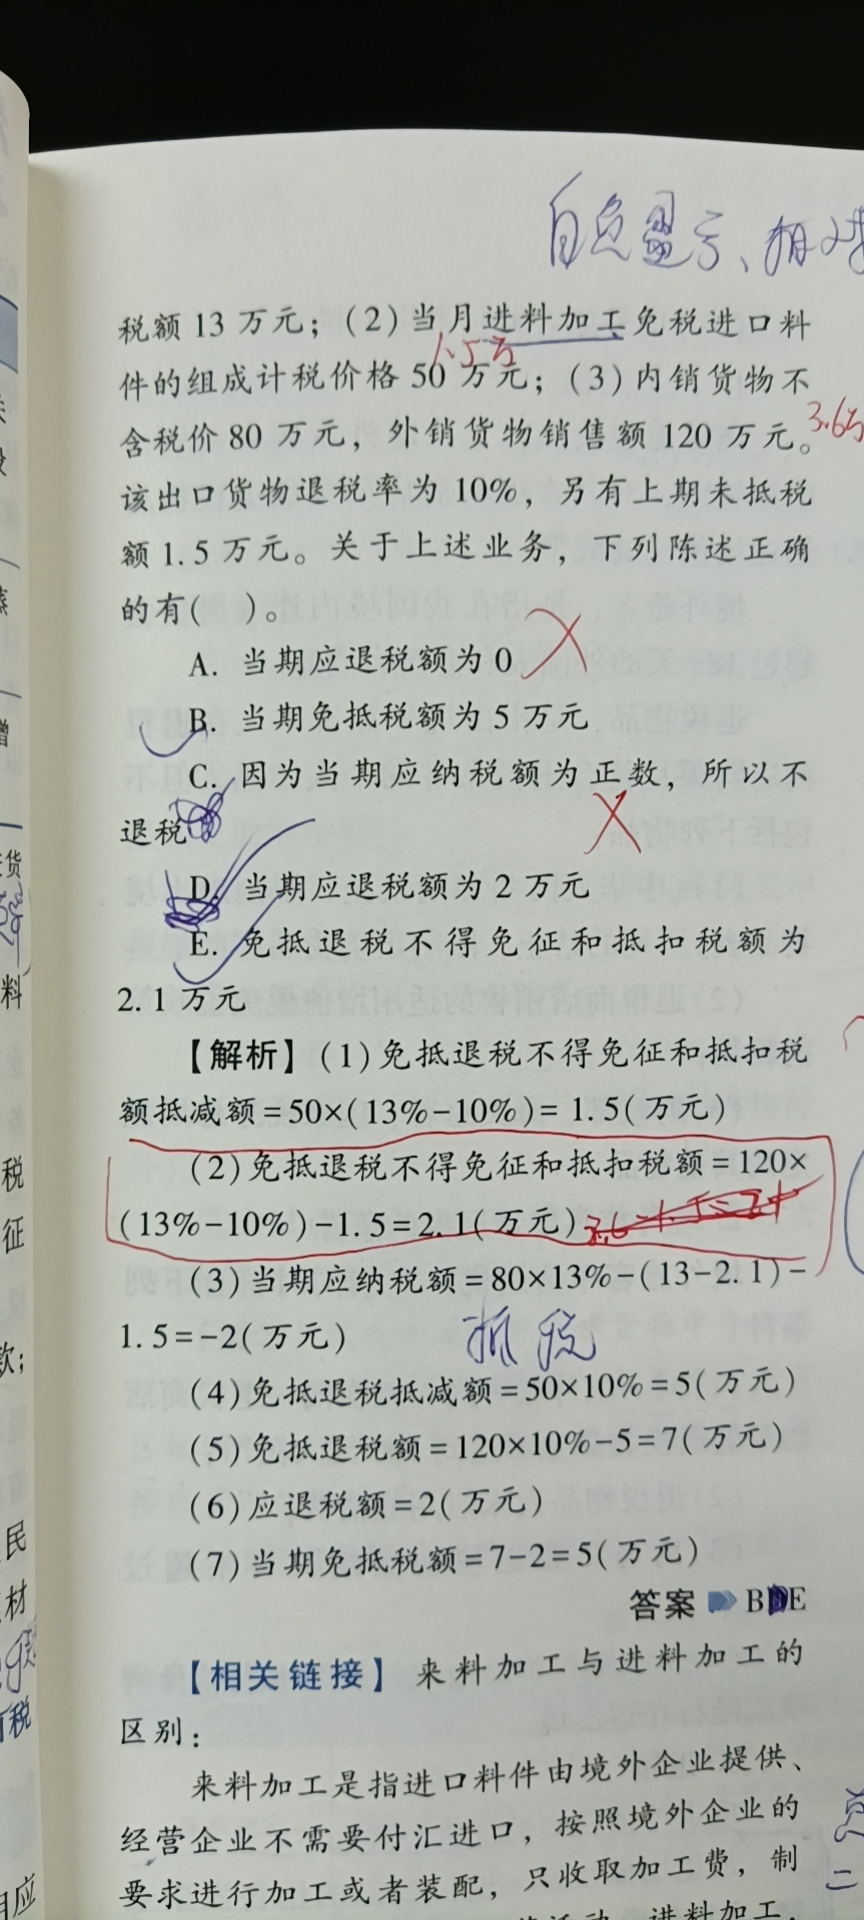 自负盈亏、
税额13万元；(2)当月进料加工免税进口料
1.5万
件的组成计税价格50万元；(3)内销货物不
3.6万
含税价80万元，外销货物销售额120万元。
该出口货物退税率为10%，另有上期未抵税
额1.5万元。关于上述业务，下列陈述正确
的有(  )。
A. 当期应退税额为0
B. 当期免抵税额为5万元
C. 因为当期应纳税额为正数，所以不
退税
D. 当期应退税额为2万元
E. 免抵退税不得免征和抵扣税额为
2.1万元
【解析】(1)免抵退税不得免征和抵扣税
额抵减额=50×(13%-10%)=1.5(万元)
(2)免抵退税不得免征和抵扣税额=120×
(13%-10%)-1.5=2.1(万元)
(3)当期应纳税额=80×13%-(13-2.1)-
1.5=-2(万元) 抵税
(4)免抵退税抵减额=50×10%=5(万元)
(5)免抵退税额=120×10%-5=7(万元)
(6)应退税额=2(万元)
(7)当期免抵税额=7-2=5(万元)
答案 BDE
【相关链接】 来料加工与进料加工的
区别：
来料加工是指进口料件由境外企业提供、
经营企业不需要付汇进口，按照境外企业的
要求进行加工或者装配，只收取加工费，制
进料加工，